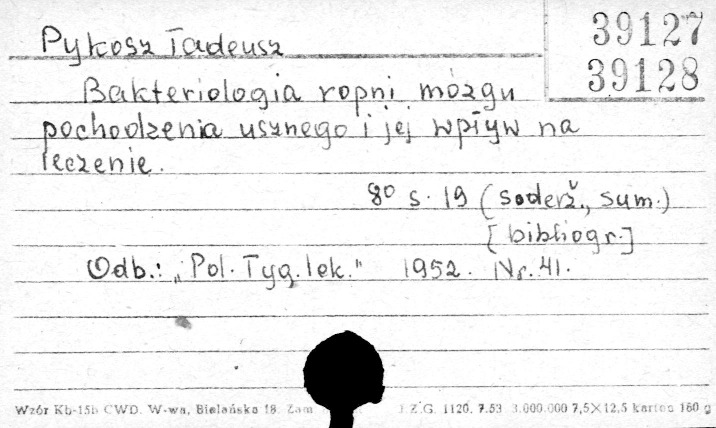 Pykosz Tadeusz
39127
39128
Bakteriologia ropni mózgu
pochodzenia usznego i jej wpływ na
leczenie.
8° s. 19 (soderž., sum.)
[bibliogr.]
Odb.: „Pol. Tyg. lek." 1952. Nr. 41.
Wzór Kb-15b CWD. W-wa, Bielańska 18. Zam. Z.G. 1120. 7.53. 3.000.000 7,5×12,5 karton 160 g